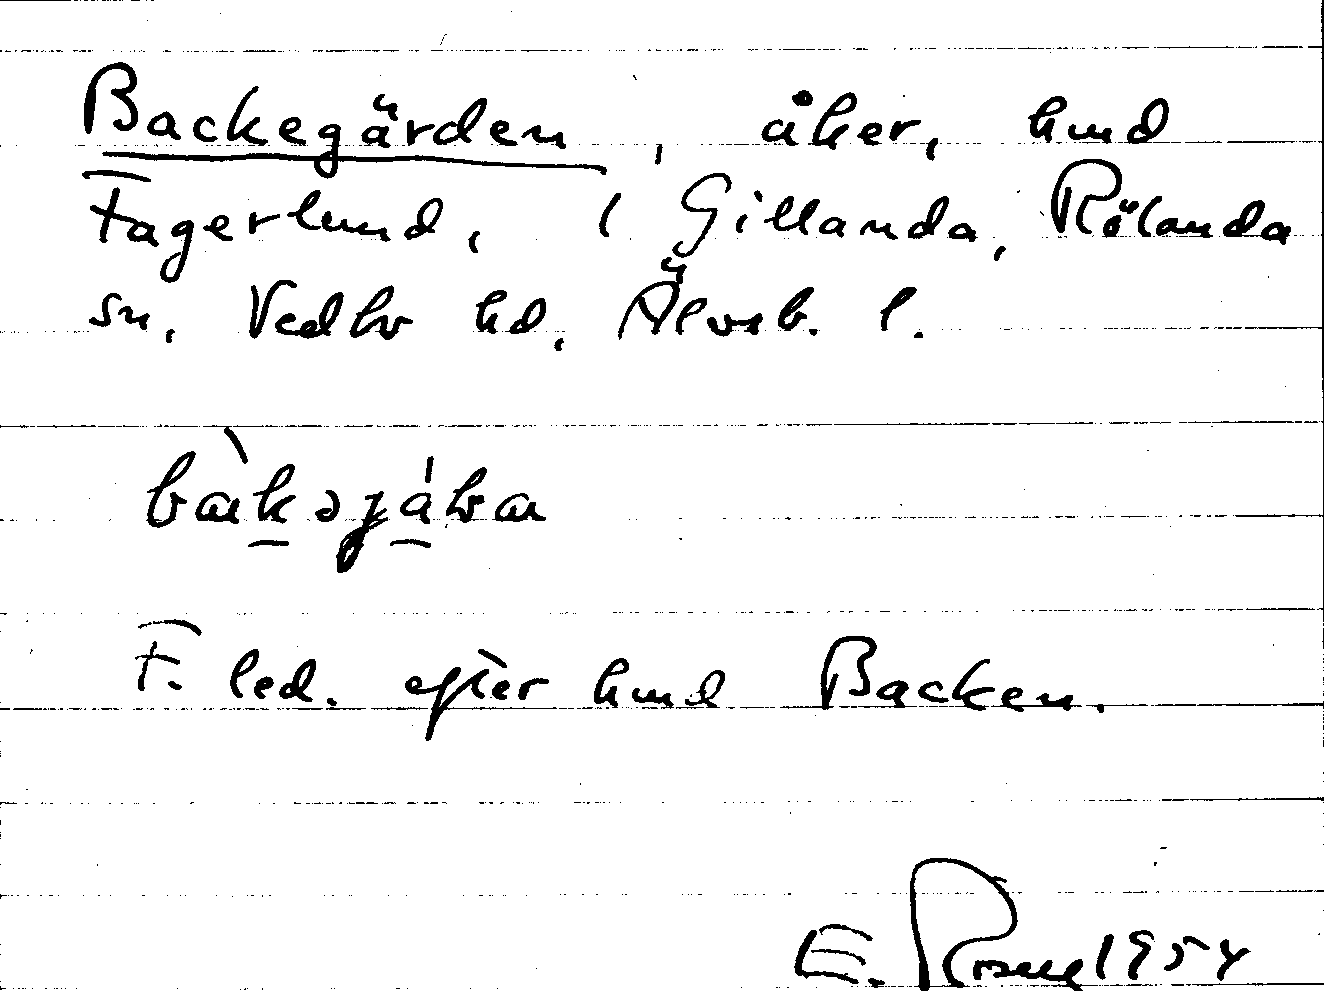 Backegärden, åker, hmd
Fagerlund, 1 Gillanda, Rölanda
sn. Vedbo hd, Älvsb. l.
F. led. efter hmd Backen.
E. 1954